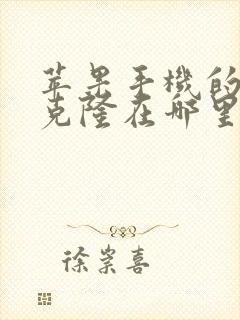 苹果手機的
克隆在哪里
徐崇喜